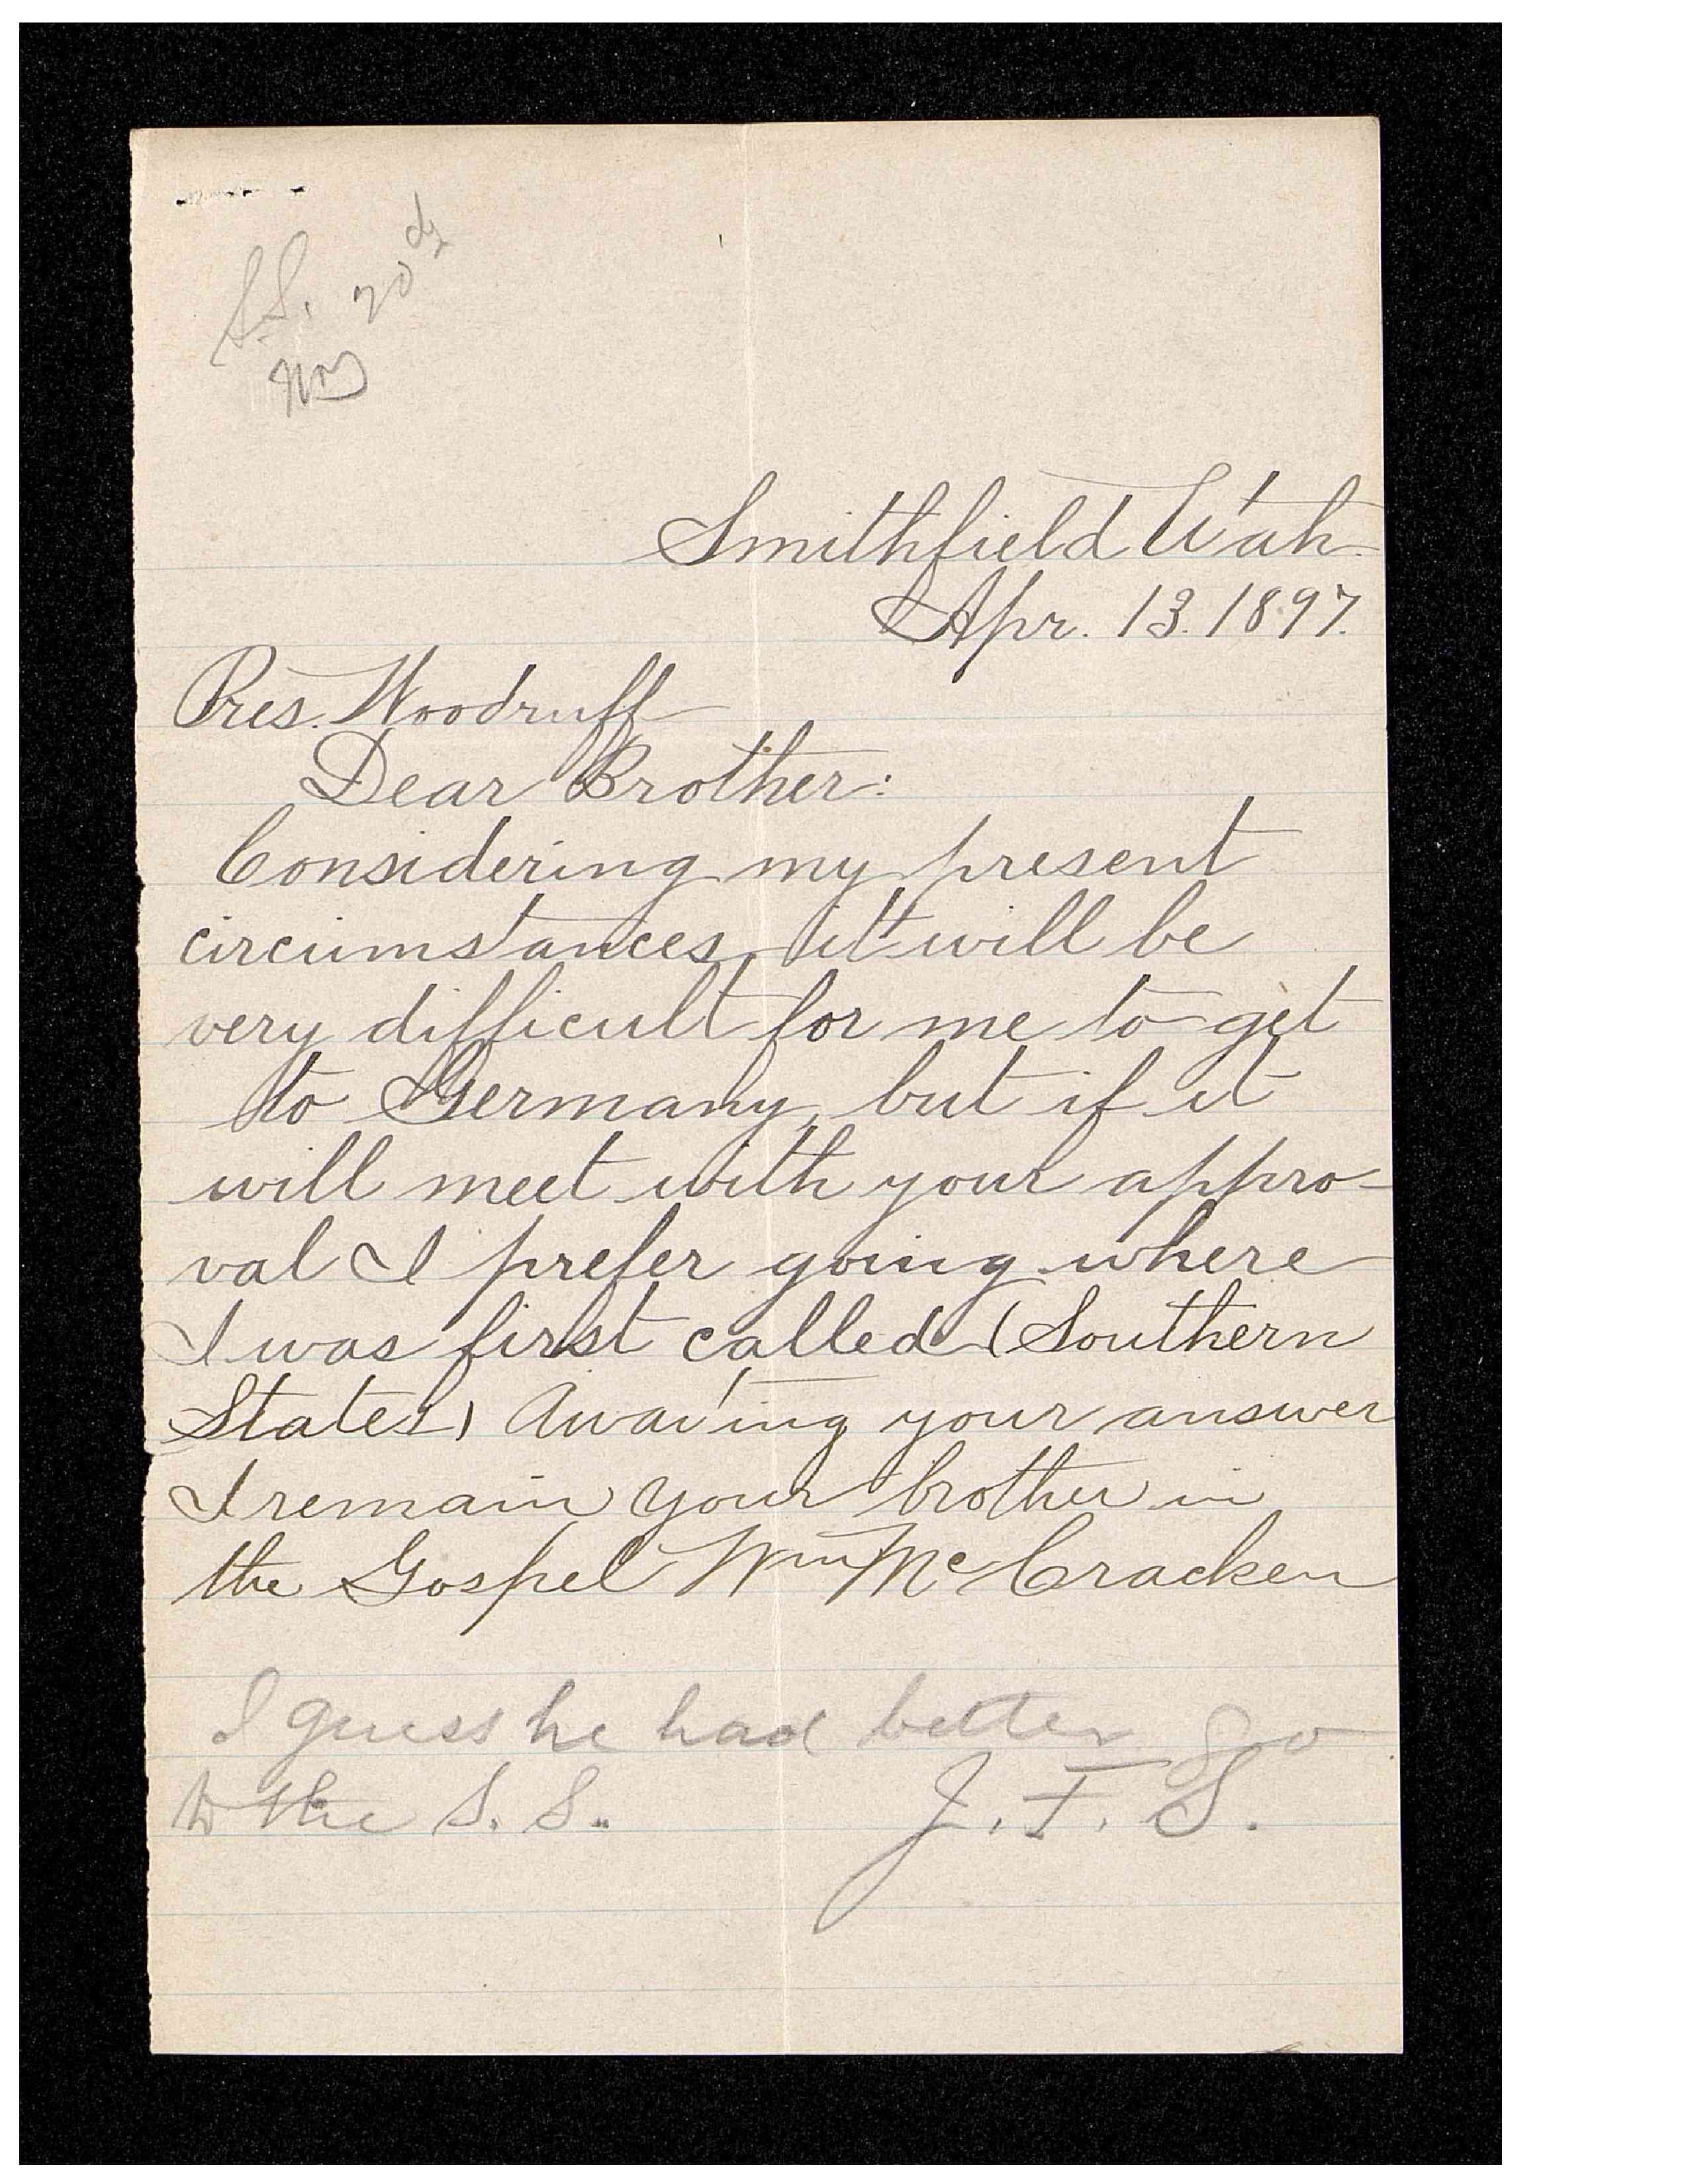 S.S. 20 dy
Smithfield Utah
Apr. 13. 1897.
Pres. Woodruff
Dear Brother:
Considering my present
circumstances, it will be
very difficult for me to get
to Germany, but if it
will meet with your appro-
val I prefer going where
I was first called (Southern
States) Awaiting your answer
I remain your brother in
the Gospel Wm McCracken
I guess he had better go
to the S. S. J. F. S.